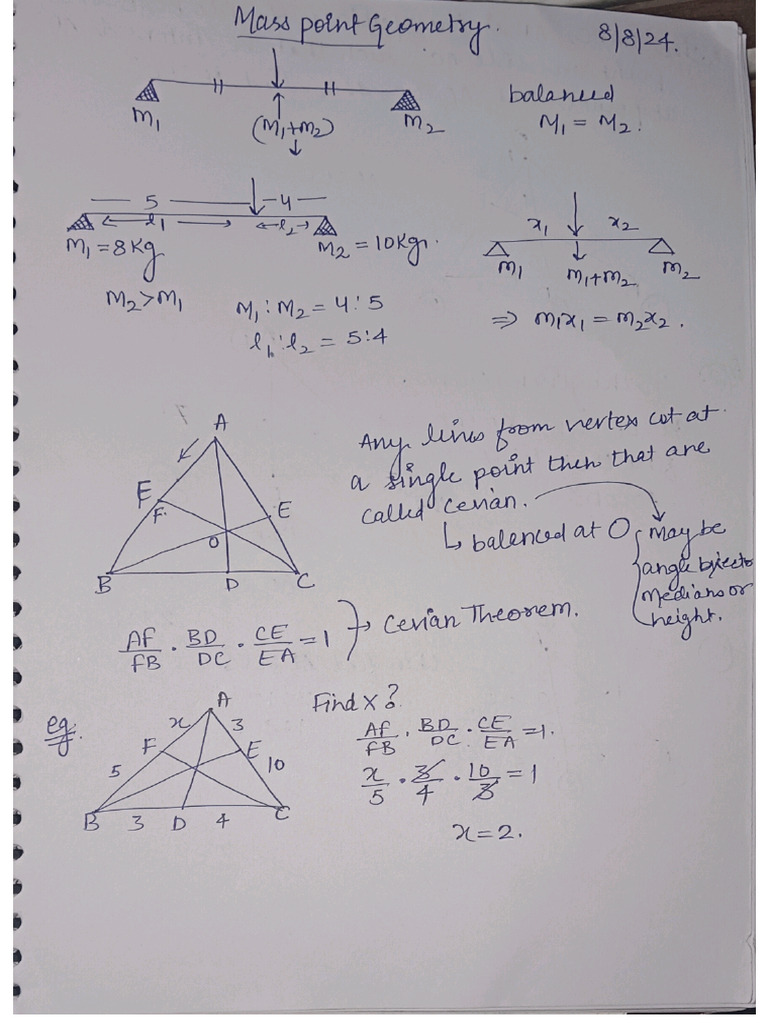 Mass point Geometry. 8/8/24.
M1 (M1+m2) m2
balanced
M1 = M2.
5 4
l1 l2
M1 = 8Kg M2 = 10Kg.
M2 > M1
M1 : M2 = 4 : 5
l1 : l2 = 5:4
x1 x2
m1 m1+m2 m2
⇒ m1x1 = m2x2.
A
E
F E
O
B D C
Any lines from vertex cut at
a single point then that are
called cevian.
↳ balenced at O
may be
angle bisecto
medians or
height.
AF/FB · BD/DC · CE/EA = 1 } → Cevian Theorem.
eg.
A
x 3
F E
5 10
B 3 D 4 C
Find x?
AF/FB · BD/DC · CE/EA = 1.
x/5 · 3/4 · 10/3 = 1
x = 2.